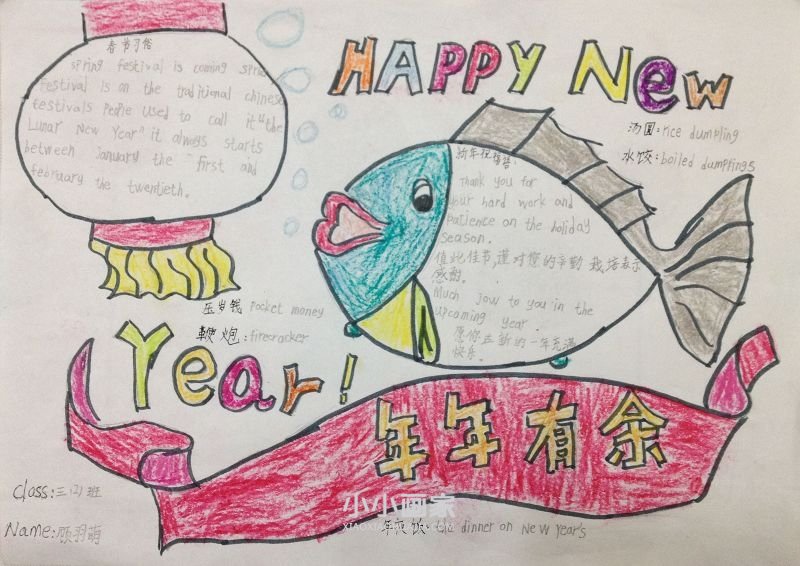 春节习俗
spring festival is coming spring
Festival is on the traditional chinese
festivals people used to call it "the
Lunar New Year" it always starts
between january the first and
february the twentieth.
HAPPY New
汤圆:rice dumpling
水饺:boiled dumplings
新年祝福语:
Thank you for
your hard work and
patience on the holiday
season.
值此佳节,谨对您的辛勤栽培表示
感谢.
Much jow to you in the
upcoming year.
愿你在新的一年充满
快乐.
压岁钱 Pocket money
鞭炮:firecracker
Year!
年年有余
class:三(2)班
Name:顾羽萌
小小画家
年夜饭: the dinner on New Year's